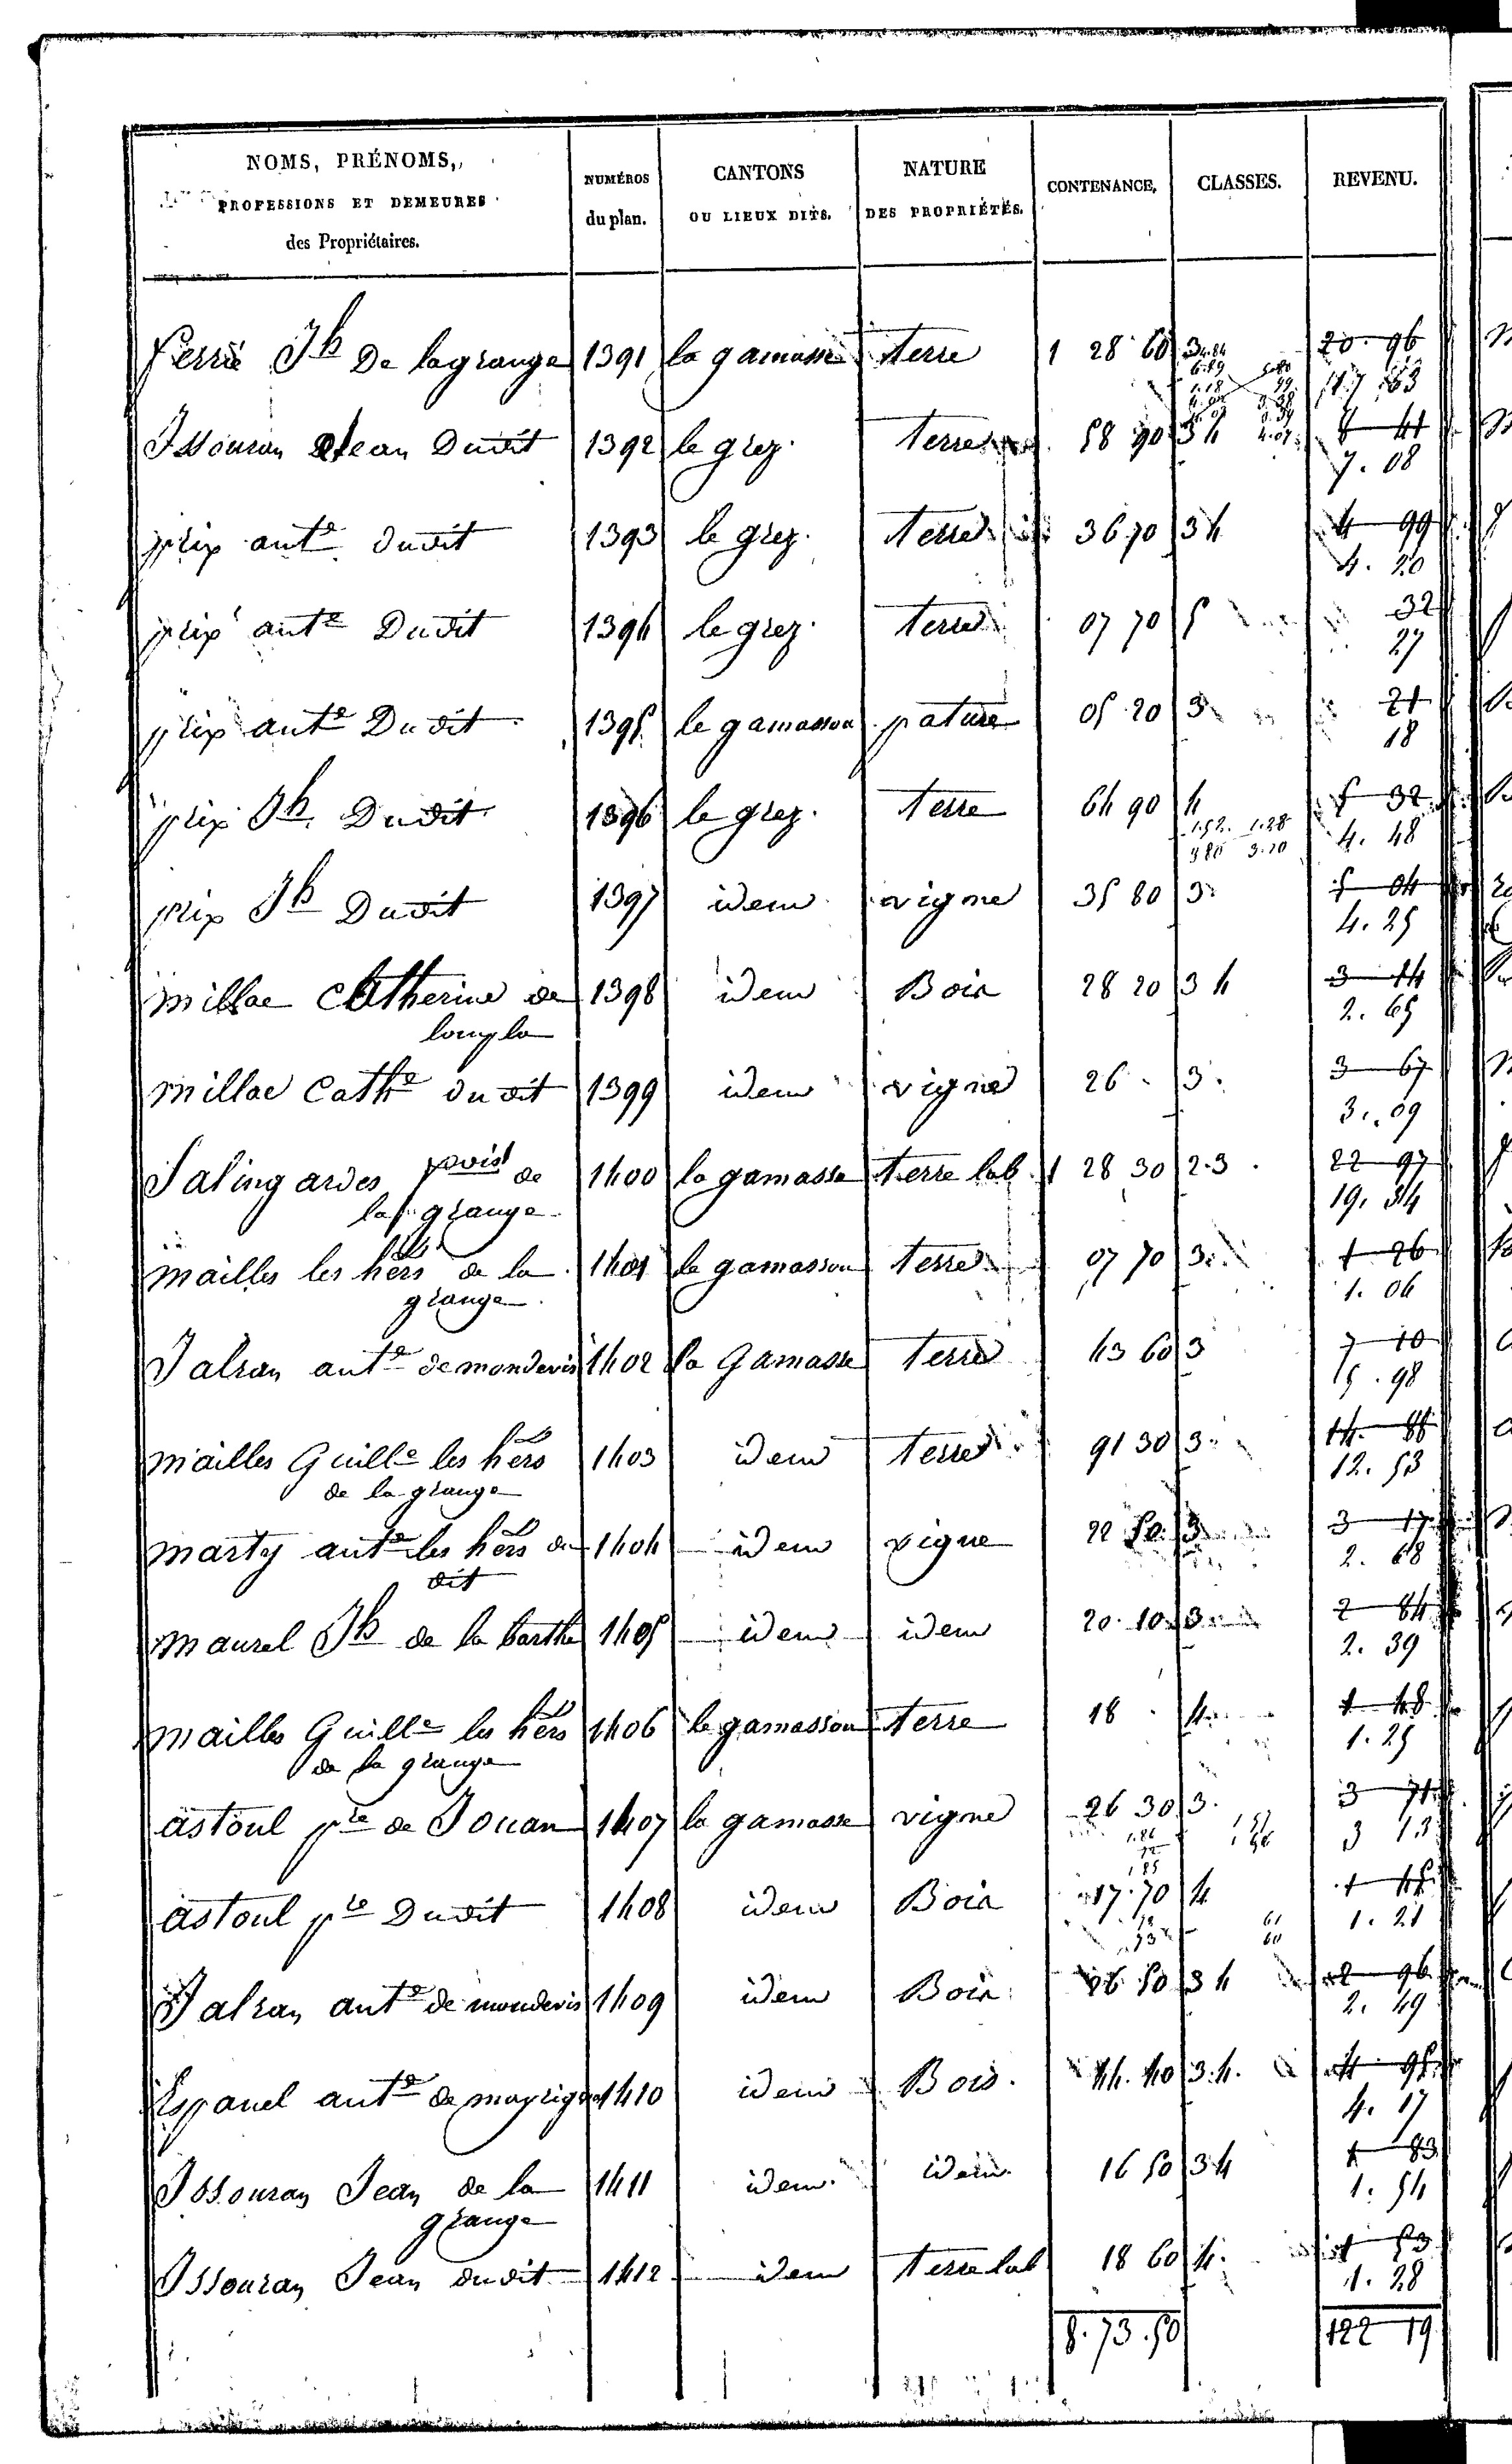 NOMS, PRÉNOMS,
PROFESSIONS ET DEMEURES
des Propriétaires.
NUMÉROS
du plan.
CANTONS
OU LIEUX DITS.
NATURE
DES PROPRIÉTÉS.
CONTENANCE.
CLASSES.
REVENU.
ferrié Jh De lagrange 1391 la gamasse terre 1 28 60 3 20 96
17 63
Issouran Jean Dudit 1392 le grez. terre 58 90 3 4
7. 08
prix ante dudit 1393 le grez. terre 36 70 3 4 4 99
4. 20
prix ante Dudit 1394 le grez. terre 07 70 5 32
27
prix ante Dudit 1395 le gamassou pature 05 20 3 21
18
prix Jh Dudit 1396 le grez. terre 64 90 4 5 32
1.52. 1.28 4. 48
3.80 3.20
prix Jh Dudit 1397 idem vigne 35 80 3. 5 04
4. 25
millac Catherine de 1398 idem Bois 28 20 3 4 3 14
2. 65
millac Cathe dudit 1399 idem vigne 26 3. 3 67
3. 09
Salingardes de 1400 la gamasse terre lab. 1 28 30 2.3. 22 97
la grange 19. 34
mailles les hers de la 1401 le gamassou terre 07 70 3. 1 26
grange 1. 06
Jalran ante de mondevis 1402 la Gamasse terre 43 60 3 7 10
5. 98
mailles Guille les hers 1403 idem terre 91 30 3. 14 88
de la grange 12. 53
marty ante les hers du 1404 idem vigne 22 50 3 3 17
dit 2. 68
maurel Jh de la barthe 1405 idem idem 20 10 3 2 84
2. 39
mailles Guille les hers 1406 le gamassou terre 18 4. 1 48
de la grange 1. 25
astoul pre de Jouan 1407 la gamasse vigne 26 30 3. 3 71
3 13
astoul pre Dudit 1408 idem Bois 17 70 4
61 1. 21
60
Jalran ante de mondevis 1409 idem Bois 26 50 3 4 2 96
2. 49
Espanel ante de 1410 idem Bois. 44. 40 3.4. 4 95
4. 17
Issouran Jean de la 1411 idem. idem. 16 50 3 4 1 83
grange 1. 54
Issouran Jean dudit 1412 idem terre lab 18 60 4. 1 53
1. 28
8. 73. 50 122 19